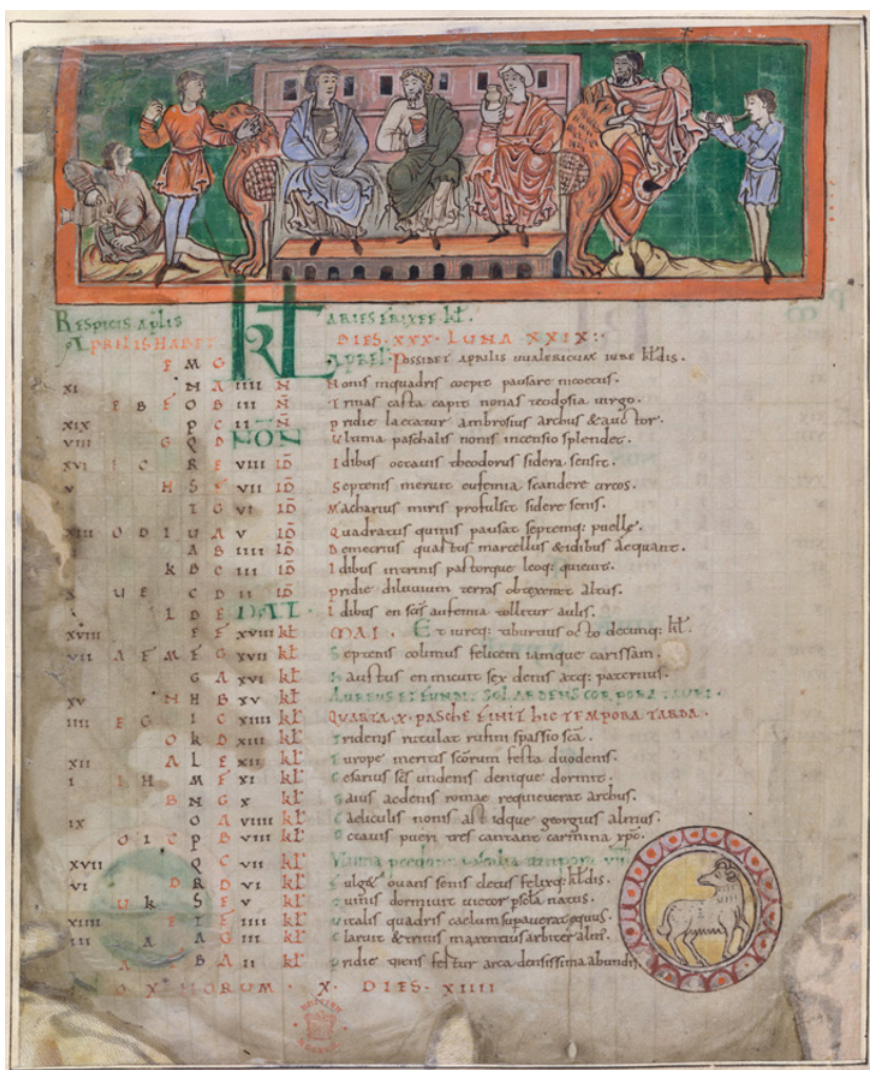 RESPICIS APLIS ARIES ERIXEE kt.
APRILIS HABET DIES · XXX · LUNA XXIX:·
F M G kt APREL· Possidet aprilis uualericum iube kłdis.
XI N A IIII N Nonis inquadris coepit pausare nicoetus·
F B F O B III N Trinas casta capit nonas teodosia uirgo.
XIX P C II N pridie laetatur ambrosius archus & auctor·
VIII G Q D NON Uluma paschalis nonis incensio splendet·
XVI I C R E VIII ID Idibus octauis theodorus sidera sensit·
V H S F VII ID Septenis meruit eufemia scandere arcos.
T G VI ID Macharius miris profulsit sidere senis·
XIII O D I U A V ID Quadratus quinis pausat septemq: puelle·
A B IIII ID Demetrius quartus marcellus & idibus aequant·
K B C III ID Idibus interinis pastorque leoq: quieuit·
X U E C D II ID pridie diluuium terras obtexerat altus·
L D E IDAI · Idibus en scis aufemia tollitur aulis.
XVIII E F XVIII kł MAI · Et iurcq: tiburtius octo decimq: kł.
VII A F M F G XVII kł Septenis colimus felicem iamque carissam·
G A XVI kł Haustus en micuit sex denis atq: paternus·
XV N H B XV kł AUREUS ET FUNDIT SOL ARDENS CORPORA TAURI·
IIII F G I C XIIII kł QUARTA · X · PASCHE FINIT HIC TEMPORA TARDA·
O K D XIII kł Tridenis rutulat rufini spassio sca·
XII A L E XII kł Europe meritis scorum festa duodenis·
I I H M F XI kł Cesarius scs undenis denique dormit·
B N G X kł Gaius acdenis romae requieuerat archus·
IX O A VIIII kł Caeliculis nonis ast idque georgius almus·
O I C P B VIII kł Octauis pueri tres cantant carmina xpo·
XVII Q C VII kł
VI D R D VI kł Fulget ouans senis decus felixq: kłdis·
U K S E V kł Quinis dormiuit uictor psceta natus·
XIIII E T F IIII kł Uitalis quadris caelum supauerat equus·
III A A G III kł Claruit & trinis maxentius arbiter alm·
A B A II kł pridie quens fertur arca densissima abundis·
NOX HORUM · X · DIES · XIIII